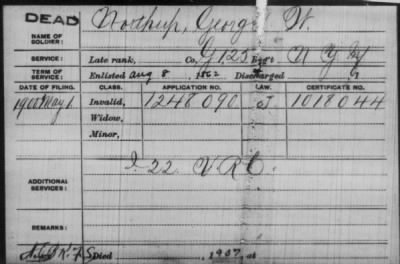 DEAD
NAME OF SOLDIER: Nothup, George W.
SERVICE: Late rank, Co. G 125 Reg't N Y Inf
TERM OF SERVICE: Enlisted Aug 8, 1862 Discharged
DATE OF FILING. CLASS. APPLICATION NO. LAW. CERTIFICATE NO.
1900 May 1. Invalid, 1248090 J 1018044
Widow,
Minor,
ADDITIONAL SERVICES: I 22 V.R.C.
REMARKS:
Died 1907, at